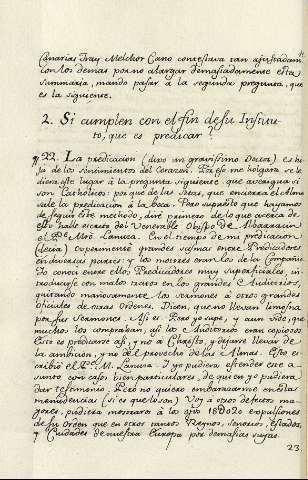 Canarias Fray Melchor Cano contestava tan ajustadam.te
con los demas por no alargar demasiadamente esta
summaria, mando pasar à la segunda pregunta, que
es la siguiente.
2. Si cumplen con el fin de su Institu-
to, que es predicar?
22. La predicacion (dixo un gravissimo Doctor) es hi-
ja de los sentimientos del Corazon. Por esso me holgara se le
diera este lugar à la pregunta siguiente que averigua si
son Catholicos: por que de las Setas, que encierra el Alma
sale la predicacion à la boca. Pero supuesto que hayamos
de seguir este methodo, diré primero de lo que acerca de
esto halle escrito del Venerable Obispo de Albarracin
el P.e Mro. Lanuza. En el tiempo de mi predicacion
(decia) experimenté grandes entre Predicadores
en diversas partes: y los mayores eran los de la Compañia
Yo conoci entre ellos Predicadores muy superficiales, in-
troducirse con malos tratos en los grandes Auditorios,
quitando mañosamente, los sermones à otros grandes
Oficiales de otras Ordenes. Dicen, que no llevan limosna
por sus Sermones. Assi es. Pero yo supe, y aun vide, que
muchos los compraban, assi los Auditorios eran copiosos
Esto es predicarse assi, y no à Christo, y dejarse llevar de
la ambicion, y no del provecho de las Almas. Esto es-
cribio el P.e M. Lanuza. I yo pudiera estender este a-
sunto con casos bien particulares, de quien yo pudiera
dar testimonio. Pero no quiero embarazarme en estas
menudencias (si es que lo son) Voy a otros defetos ma-
yores, pudiera mostrar à los ojos 18 ò 20 expulsiones
de su Orden que en otros tantos Reynos, señorios, estados,
y Ciudades de nuestra Europa por demasias suyas.
23